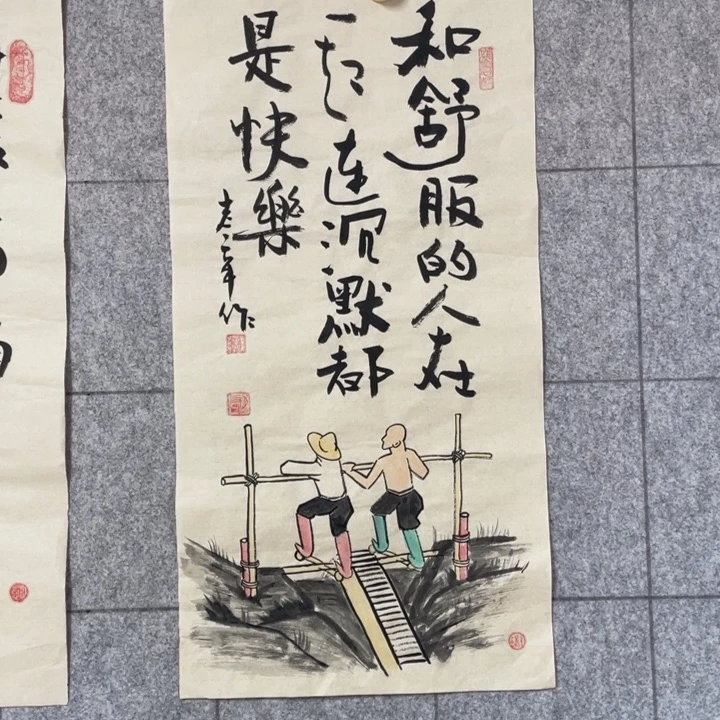 和舒服的人在
一起连沉默都
是快樂
老二年作